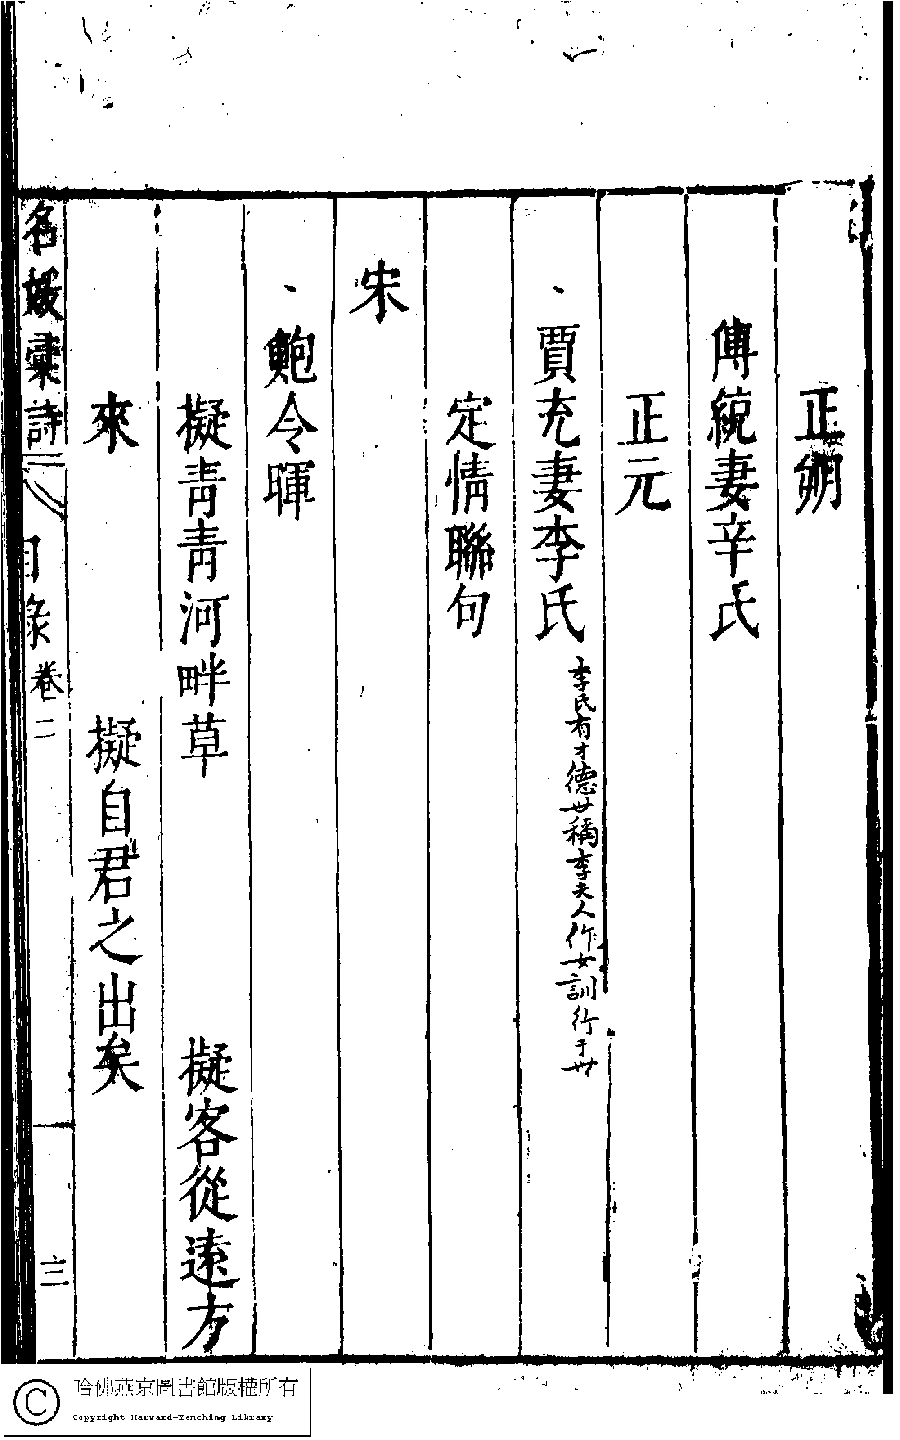 正朔
傅統妻辛氏
正元
、賈充妻李氏
李氏有才德世稱李夫人作女訓行于世
定情聯句
宋
、鮑令暉
擬青青河畔草 擬客從遠方
來 擬自君之出矣
名媛彙詩 目錄 卷二 三
哈佛燕京圖書館版權所有
Copyright Harvard-Yenching Library